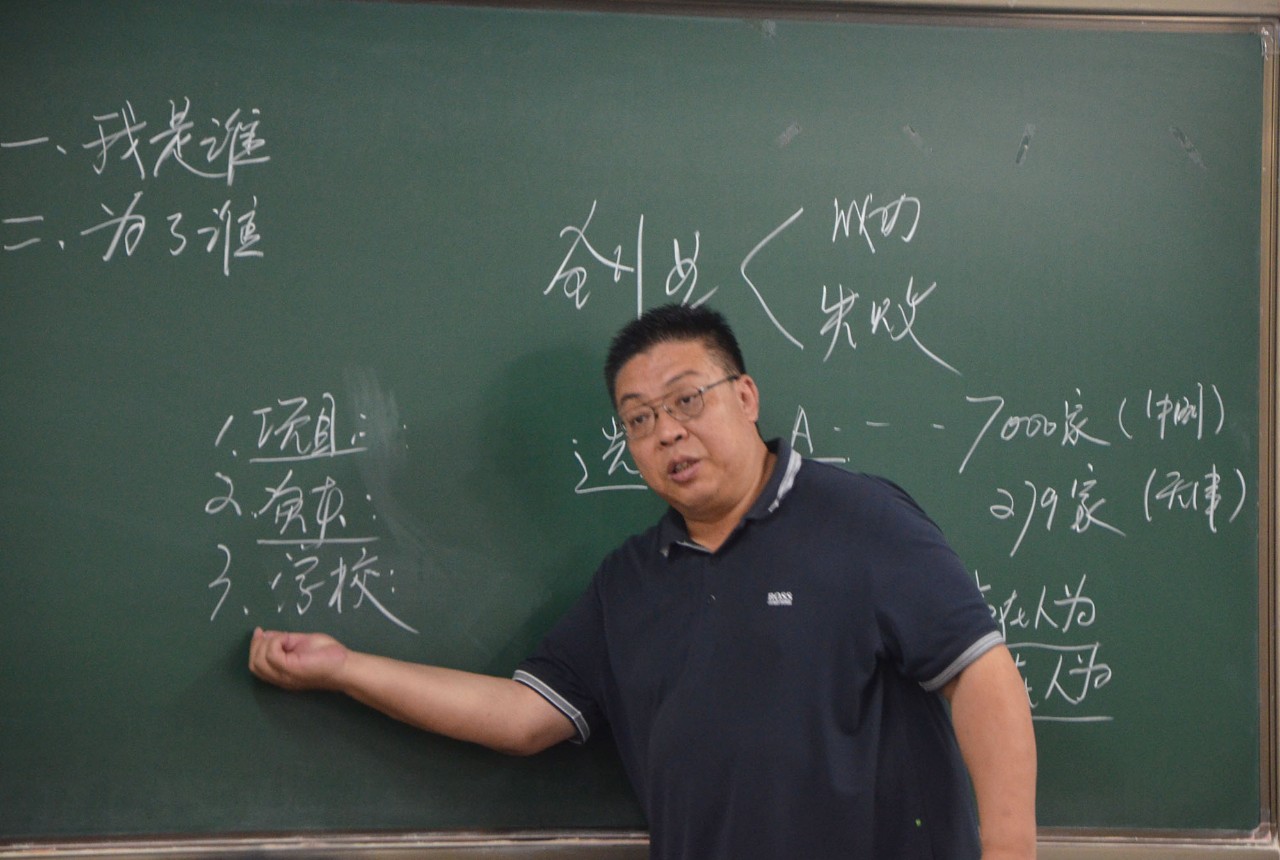 一、我是谁
二、为了谁
创业
成功
失败
1. 项目:
2. 资本:
3、学校:
选
A. - - -
7000家(中国)
279家(天津)
在人为
人为
BOSS